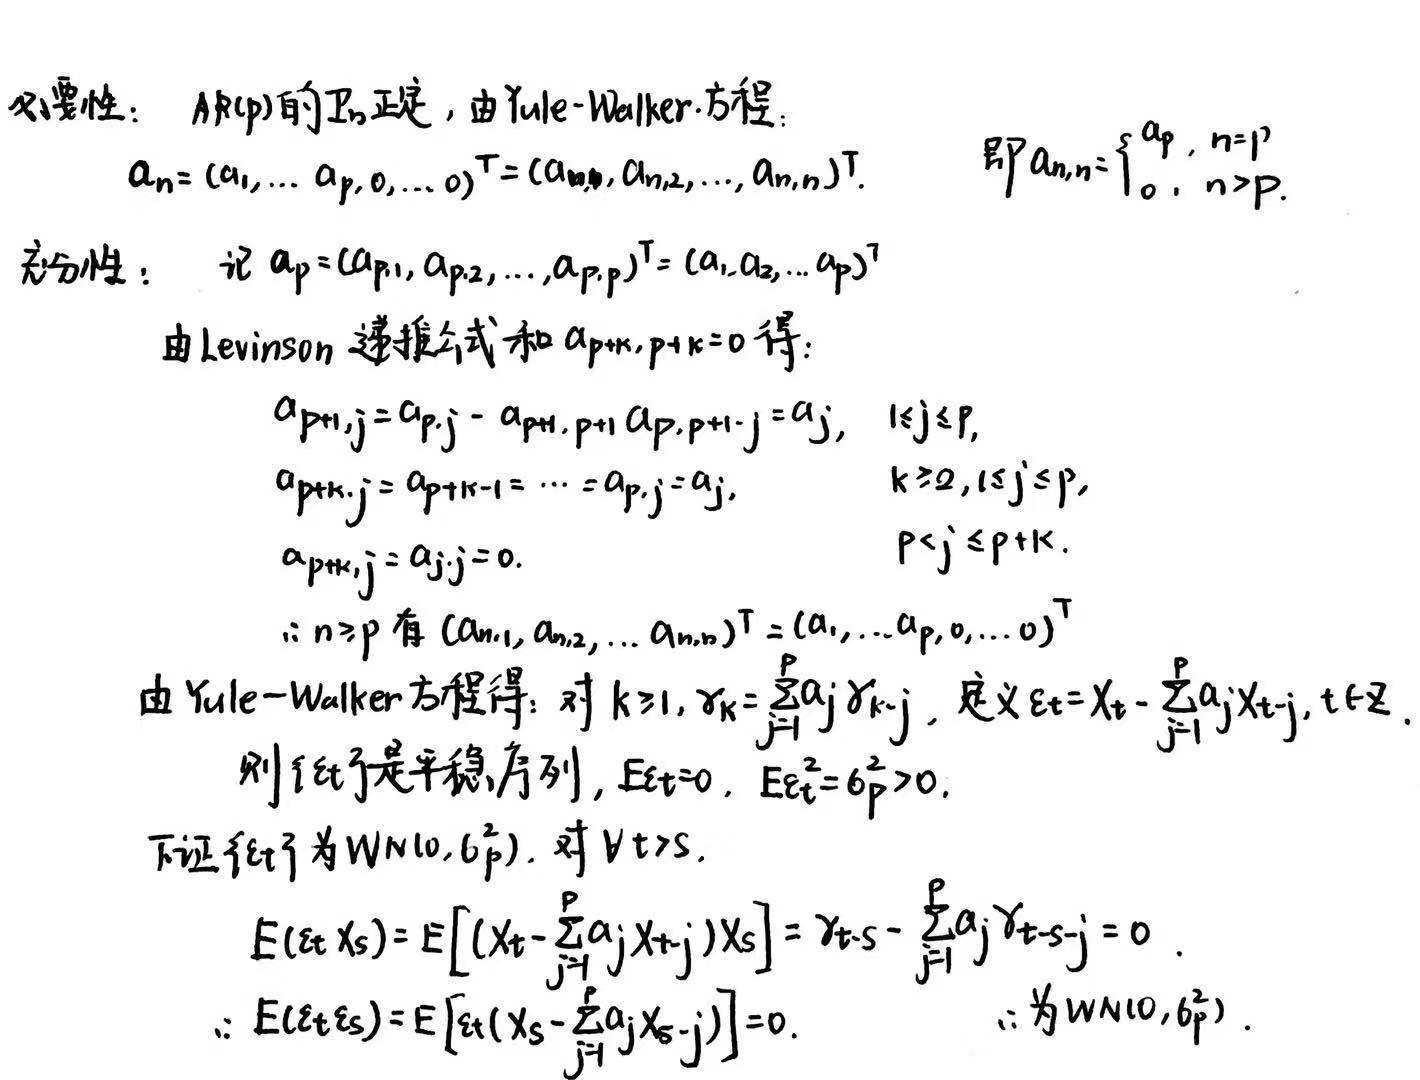 必要性： AR(p)的Γn正定，由Yule-Walker方程：
an=(a1,… ap,0,…0)^T=(an,1,an,2,…,an,n)^T. 即an,n={ap, n=p
0, n>p.
充分性： 记 ap=(ap,1,ap,2,…,ap,p)^T=(a1,a2,…ap)^T
由Levinson 递推公式和 ap+k,p+k=0得：
ap+1,j=ap,j-ap+1,p+1ap,p+1-j=aj, 1≤j≤p,
ap+k,j=ap+k-1=…=ap,j=aj, k≥2,1≤j≤p,
ap+k,j=aj,j=0. p<j≤p+k.
∴n≥p 有(an,1,an,2,…an,n)^T=(a1,…ap,0,…0)^T
由Yule-Walker方程得：对k≥1,γk=∑_{j=1}^{p}ajγk-j, 定义εt=Xt-∑_{j=1}^{p}ajXt-j,t∈Z.
则{εt}是平稳序列, Eεt=0. Eεt²=σp²>0.
下证{εt}为WN(0,σp²). 对∀t>s.
E(εtXs)=E[(Xt-∑_{j=1}^{p}ajXt-j)Xs]=γt-s-∑_{j=1}^{p}ajγt-s-j=0.
∴E(εtεs)=E[εt(Xs-∑_{j=1}^{p}ajXs-j)]=0. ∴为WN(0,σp²).